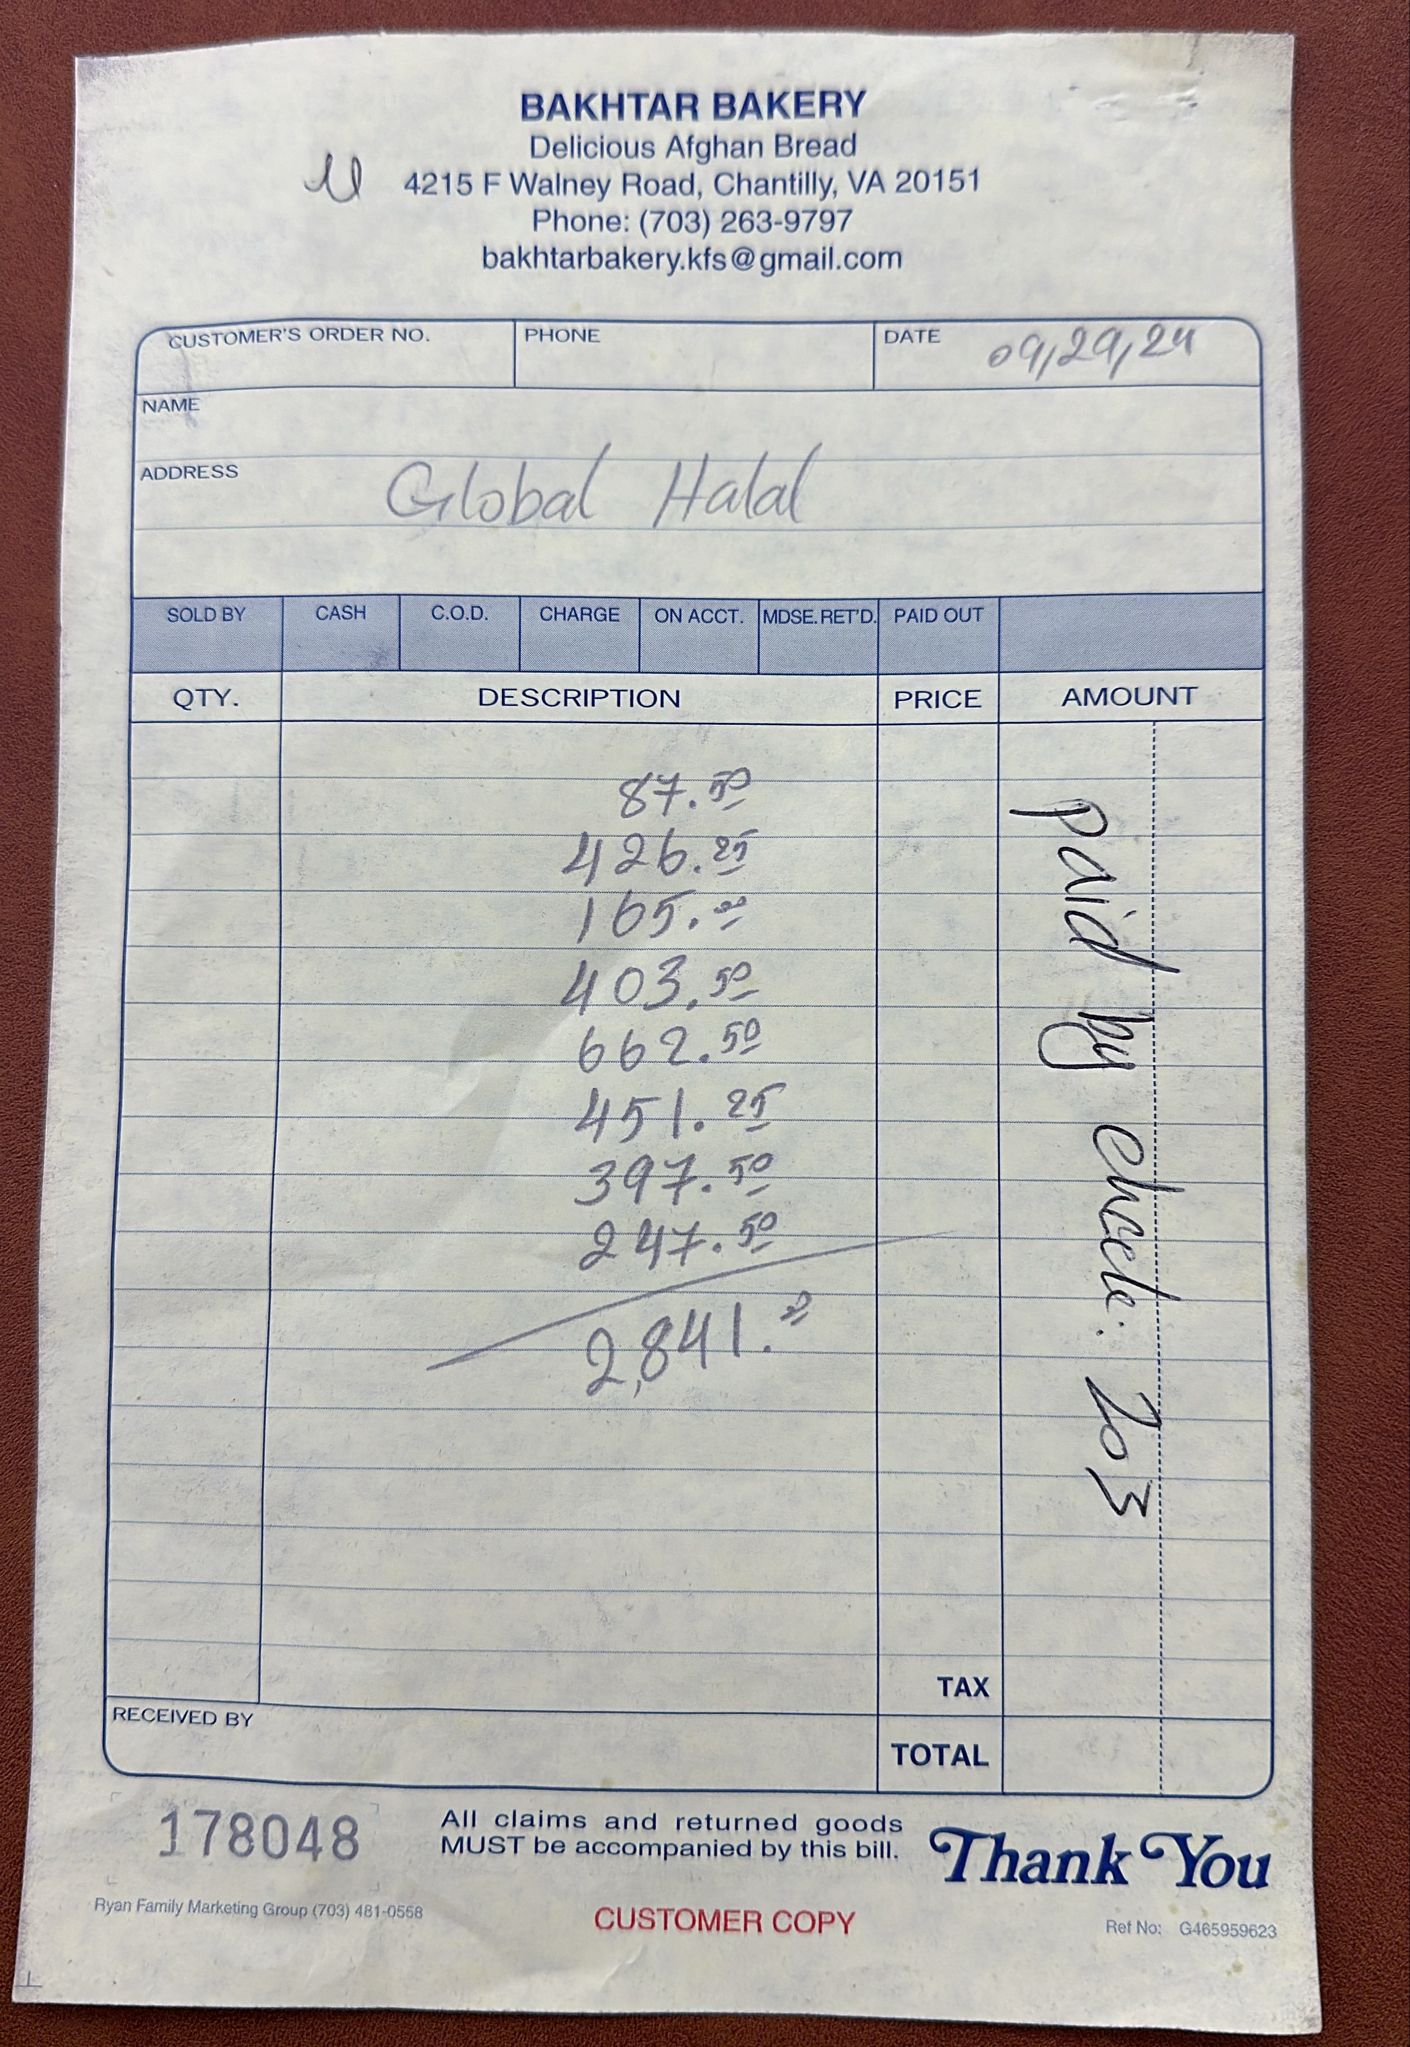 BAKHTAR BAKERY
Delicious Afghan Bread
4215 F Walney Road, Chantilly, VA 20151
Phone: (703) 263-9797
bakhtarbakery.kfs@gmail.com
CUSTOMER'S ORDER NO. PHONE DATE 09,29,24
NAME
ADDRESS Global Halal
SOLD BY CASH C.O.D. CHARGE ON ACCT. MDSE. RET'D. PAID OUT
QTY. DESCRIPTION PRICE AMOUNT
87.50
426.25
165.00
403.50
662.50
451.25
397.50
247.50
2,841.00
paid by check: 203
TAX
RECEIVED BY
TOTAL
178048
All claims and returned goods
MUST be accompanied by this bill.
Thank You
Ryan Family Marketing Group (703) 481-0558
CUSTOMER COPY
Ref No: G465959623